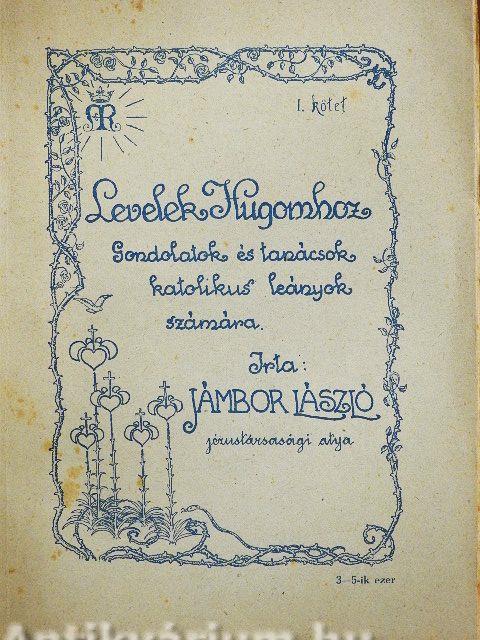 MR
I. kötet
Levelek Hugomhoz
Gondolatok és tanácsok
katolikus leányok
számára.
Irta:
JÁMBOR LÁSZLÓ
jézustársasági atya
3—5-ik ezer
Antikvárium.hu